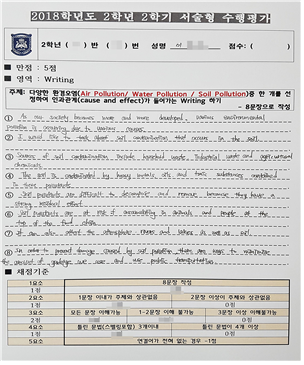 2018학년도 2학년 2학기 서술형 수행평가
2학년 ( ) 반 ( ) 번 성명 점수: ( )
■ 만점 : 5점
■ 영역 : Writing
주제: 다양한 환경오염(Air Pollution/ Water Pollution / Soil Pollution)중 한 개를 선
정하여 인과관계(cause and effect)가 들어가는 Writing 하기
- 8문장으로 작성
① As our society becomes more and more developed, various environmental
pollution is occurring due to various causes.
② I would like to talk about soil contamination that occurs in the soil.
③ Sources of soil contamination include household waste, industrial waste and agricultural
chemicals.
④ The soil is contaminated by heavy metals, oils and toxic substances contained
in these
⑤ Soil pollutants are difficult to decompose and remove because they have a
strong residual effect.
⑥ Soil pollutants are at risk of accumulating in animals and people at the
top of the food chain.
⑦ It can also affect the atmosphere, rivers and lakes as well as soil.
⑧ In order to prevent damage caused by soil pollution, there are ways to minimize
the amount of garbage we use and use public transportation.
■ 채점기준
1요소 8문장 작성
1점
2요소 1문장 이내가 주제와 상관없음 2문장 이상이 주제와 상관없음
1점 0점
3요소 모든 문장 이해가능 1-2문장 이해 불가능 3문장 이상 이해불가능
2점 0점
4요소 틀린 문법(스펠링포함) 3개이내 틀린 문법이 4개 이상
1점 0점
5요소 연결어가 전혀 없는 경우 -1점